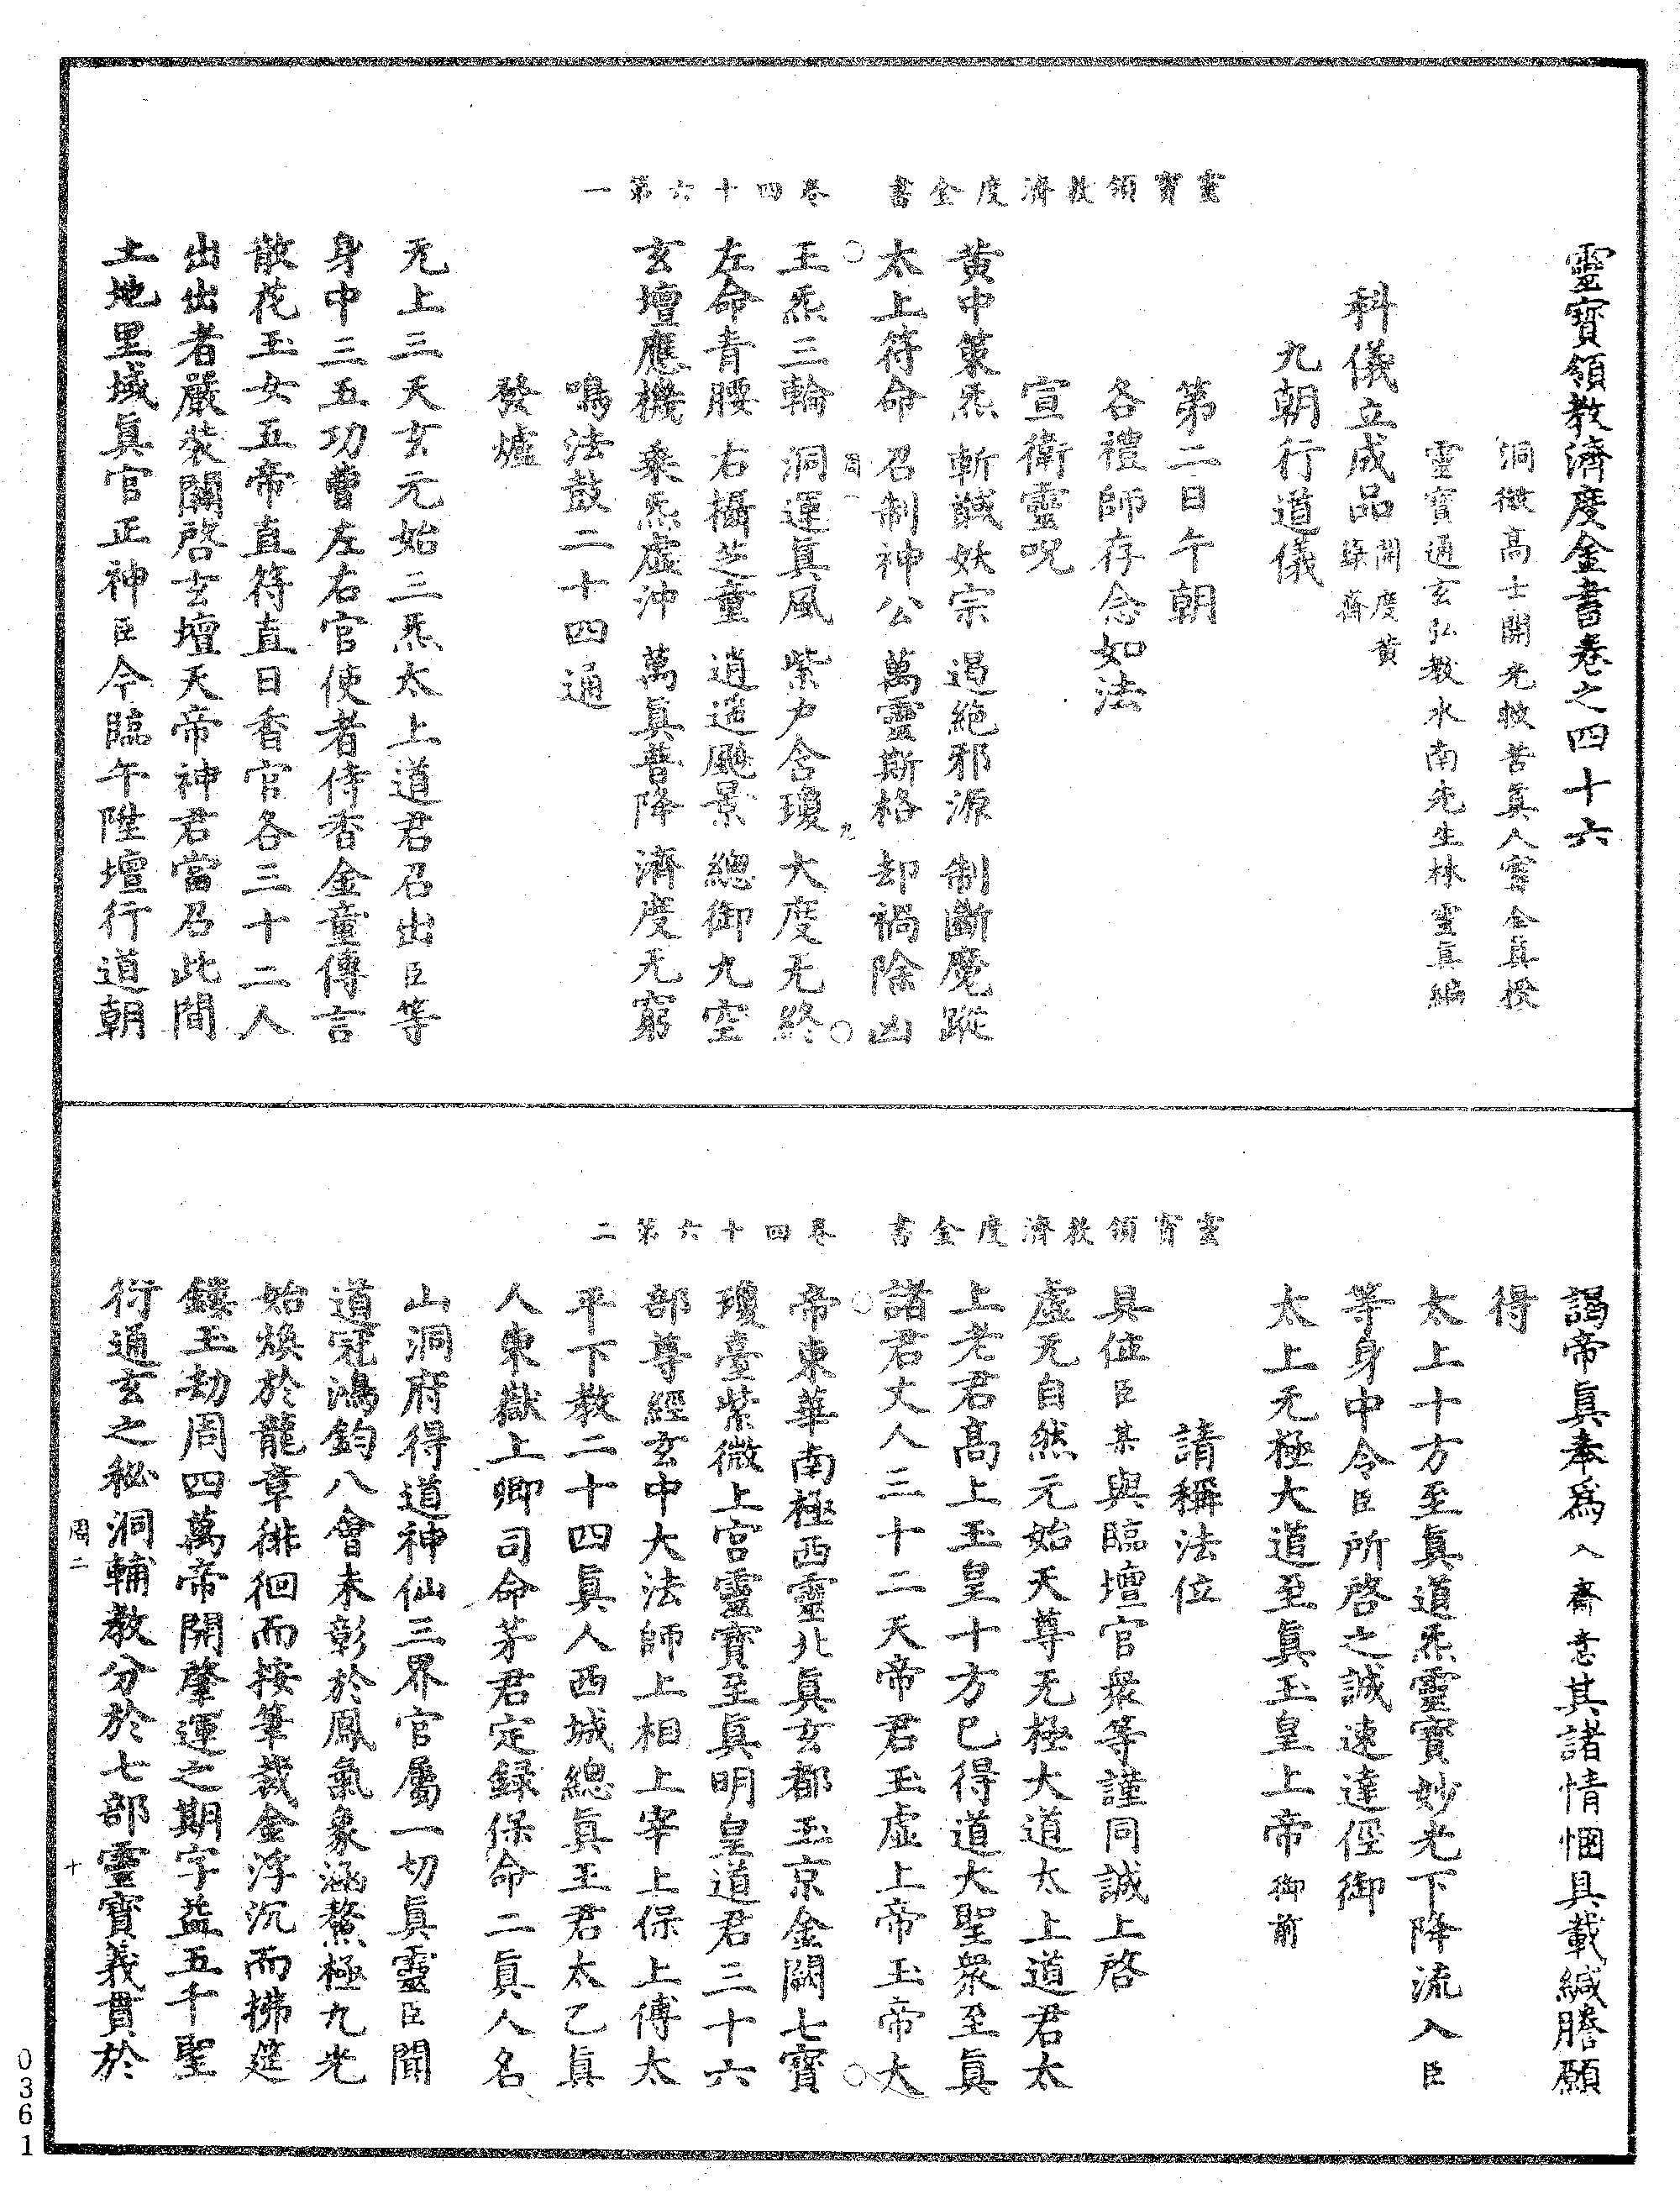 靈寶領教濟度金書　卷四十六第一
靈寶領教濟度金書卷之四十六
洞微高士開光救苦真人甯全真授
靈寶通玄弘教水南先生林靈真編
科儀立成品開度黃籙齋
九朝行道儀
第二日午朝
各禮師存念如法
宣衛靈呪
黃中策炁　斬馘妖宗　遏絕邪源　制斷魔蹤
太上符命　召制神公　萬靈斯格　却禍除凶
周一　九
王炁三輪　洞運眞風　紫戶含瓊　大度无終
左命青腰　右攝芝童　逍遥飈景　總御九空
玄壇應機　乘炁虛沖　萬眞普降　濟度无窮
鳴法鼓二十四通
發爐
无上三天玄元始三炁太上道君召出臣等
身中三五功曹左右官使者侍香金童傳言
散花玉女五帝直符直日香官各三十二人
出出者嚴裝關啓玄壇天帝神君當召此間
土地里域眞官正神臣今臨午陞壇行道朝
靈寶領教濟度金書　卷四十六第二
謁帝眞奉爲入齋意其諸情悃具載緘謄願
得
太上十方至眞道炁靈寶妙光下降流入臣
等身中令臣所啓之誠速達徑御
太上无極大道至眞玉皇上帝御前
請稱法位
具位臣某與臨壇官衆等謹同誠上啓
虛无自然元始天尊无極大道太上道君太
上老君高上玉皇十方已得道大聖衆至眞
諸君丈人三十二天帝君玉虛上帝玉帝大
帝東華南極西靈北眞玄都玉京金闕七寶
瓊臺紫微上宮靈寶至眞明皇道君三十六
部尊經玄中大法師上相上宰上保上傅太
平下教二十四眞人西城總眞王君太乙眞
人東嶽上卿司命茅君定録保命二眞人名
山洞府得道神仙三界官屬一切眞靈臣聞
道冠鴻鈞八會未彰於鳳氣象涵鰲極九光
始煥於龍章徘徊而按筆裁金浮沉而拂筵
鏤玉劫周四萬帝開肇運之期字益五千聖
衍通玄之秘洞輔教分於七部靈寶義貫於
周二　十
0361